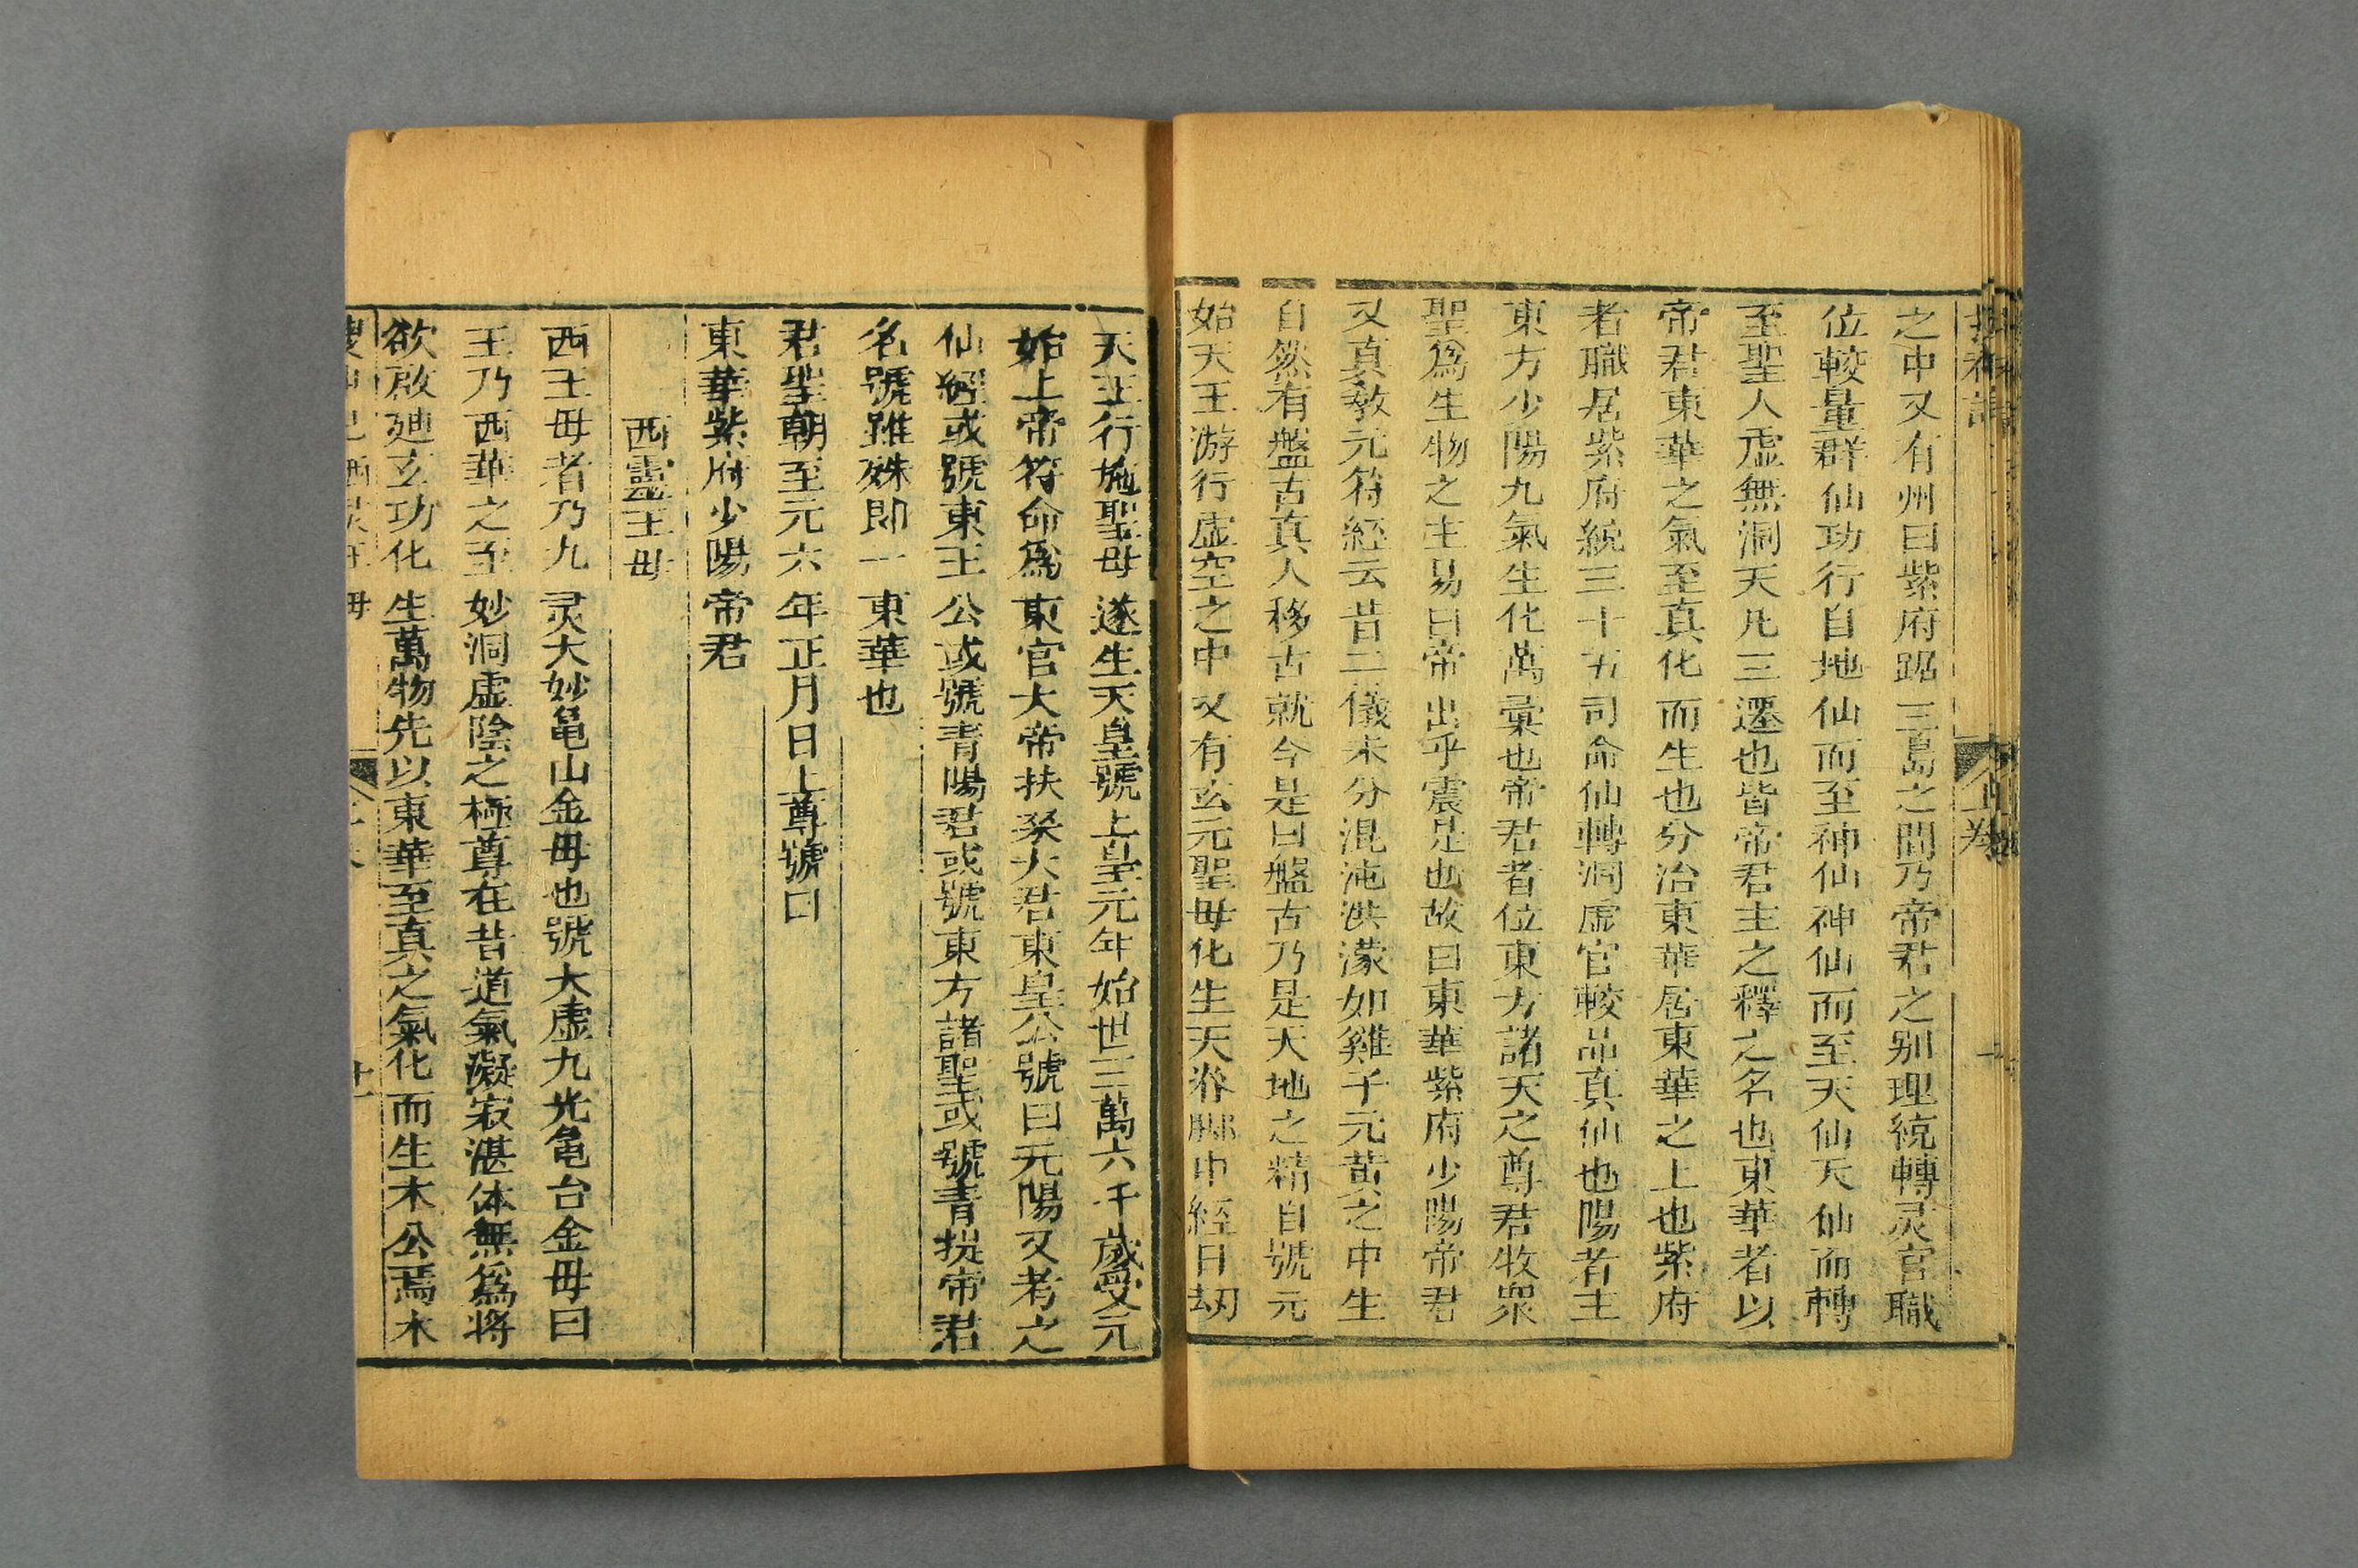 之中又有州曰紫府踞三島之間乃帝君之别理統轉灵官職
位較量群仙功行自地仙而至神仙神仙而至天仙天仙而轉
至聖人虛無洞天凡三遷也皆帝君主之釋之名也東華者以
帝君東華之氣至真化而生也分治東華居東華之上也紫府
者職居紫府統三十五司命仙轉洞虛官較品真仙也陽者主
東方少陽九氣生化萬彙也帝君者位東方諸天之尊君牧衆
聖爲生物之主易曰帝出乎震是也故曰東華紫府少陽帝君
又真教元符經云昔二儀未分混沌洪濛如雞子元黄之中生
自然有盤古真人移古就今是曰盤古乃是天地之精自號元
始天王游行虛空之中又有玄元聖母化生天 中經日劫
天王行施聖母遂生天皇號上皇元年始世三萬六千歲受元
始上帝符命爲東官大帝扶桑大君東皇公號曰元陽又考之
仙經或號東王公或號青陽君或號東方諸聖或號青提帝君
名號雖殊即一東華也
君聖朝至元六年正月日上尊號曰
東華紫府少陽帝君
西靈王母
西王母者乃九灵大妙亀山金毋也號大虛九光亀台金毋曰
王乃西華之至妙洞虛陰之極尊在昔道氣凝寂湛体無爲将
欲啟廸玄功化生萬物先以東華至真之氣化而生木公焉木